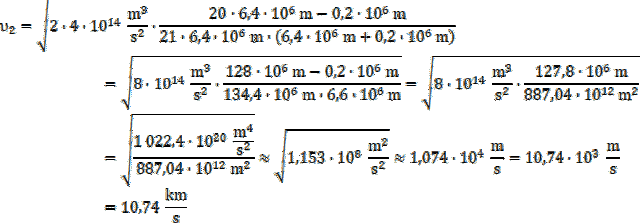 υ₂ = √(2 · 4 · 10¹⁴ m³/s² · (20 · 6,4 · 10⁶ m − 0,2 · 10⁶ m)/(21 · 6,4 · 10⁶ m · (6,4 · 10⁶ m + 0,2 · 10⁶ m)))
= √(8 · 10¹⁴ m³/s² · (128 · 10⁶ m − 0,2 · 10⁶ m)/(134,4 · 10⁶ m · 6,6 · 10⁶ m)) = √(8 · 10¹⁴ m³/s² · (127,8 · 10⁶ m)/(887,04 · 10¹² m²))
= √((1 022,4 · 10²⁰ m⁴/s²)/(887,04 · 10¹² m²)) ≈ √(1,153 · 10⁸ m²/s²) ≈ 1,074 · 10⁴ m/s = 10,74 · 10³ m/s
= 10,74 km/s